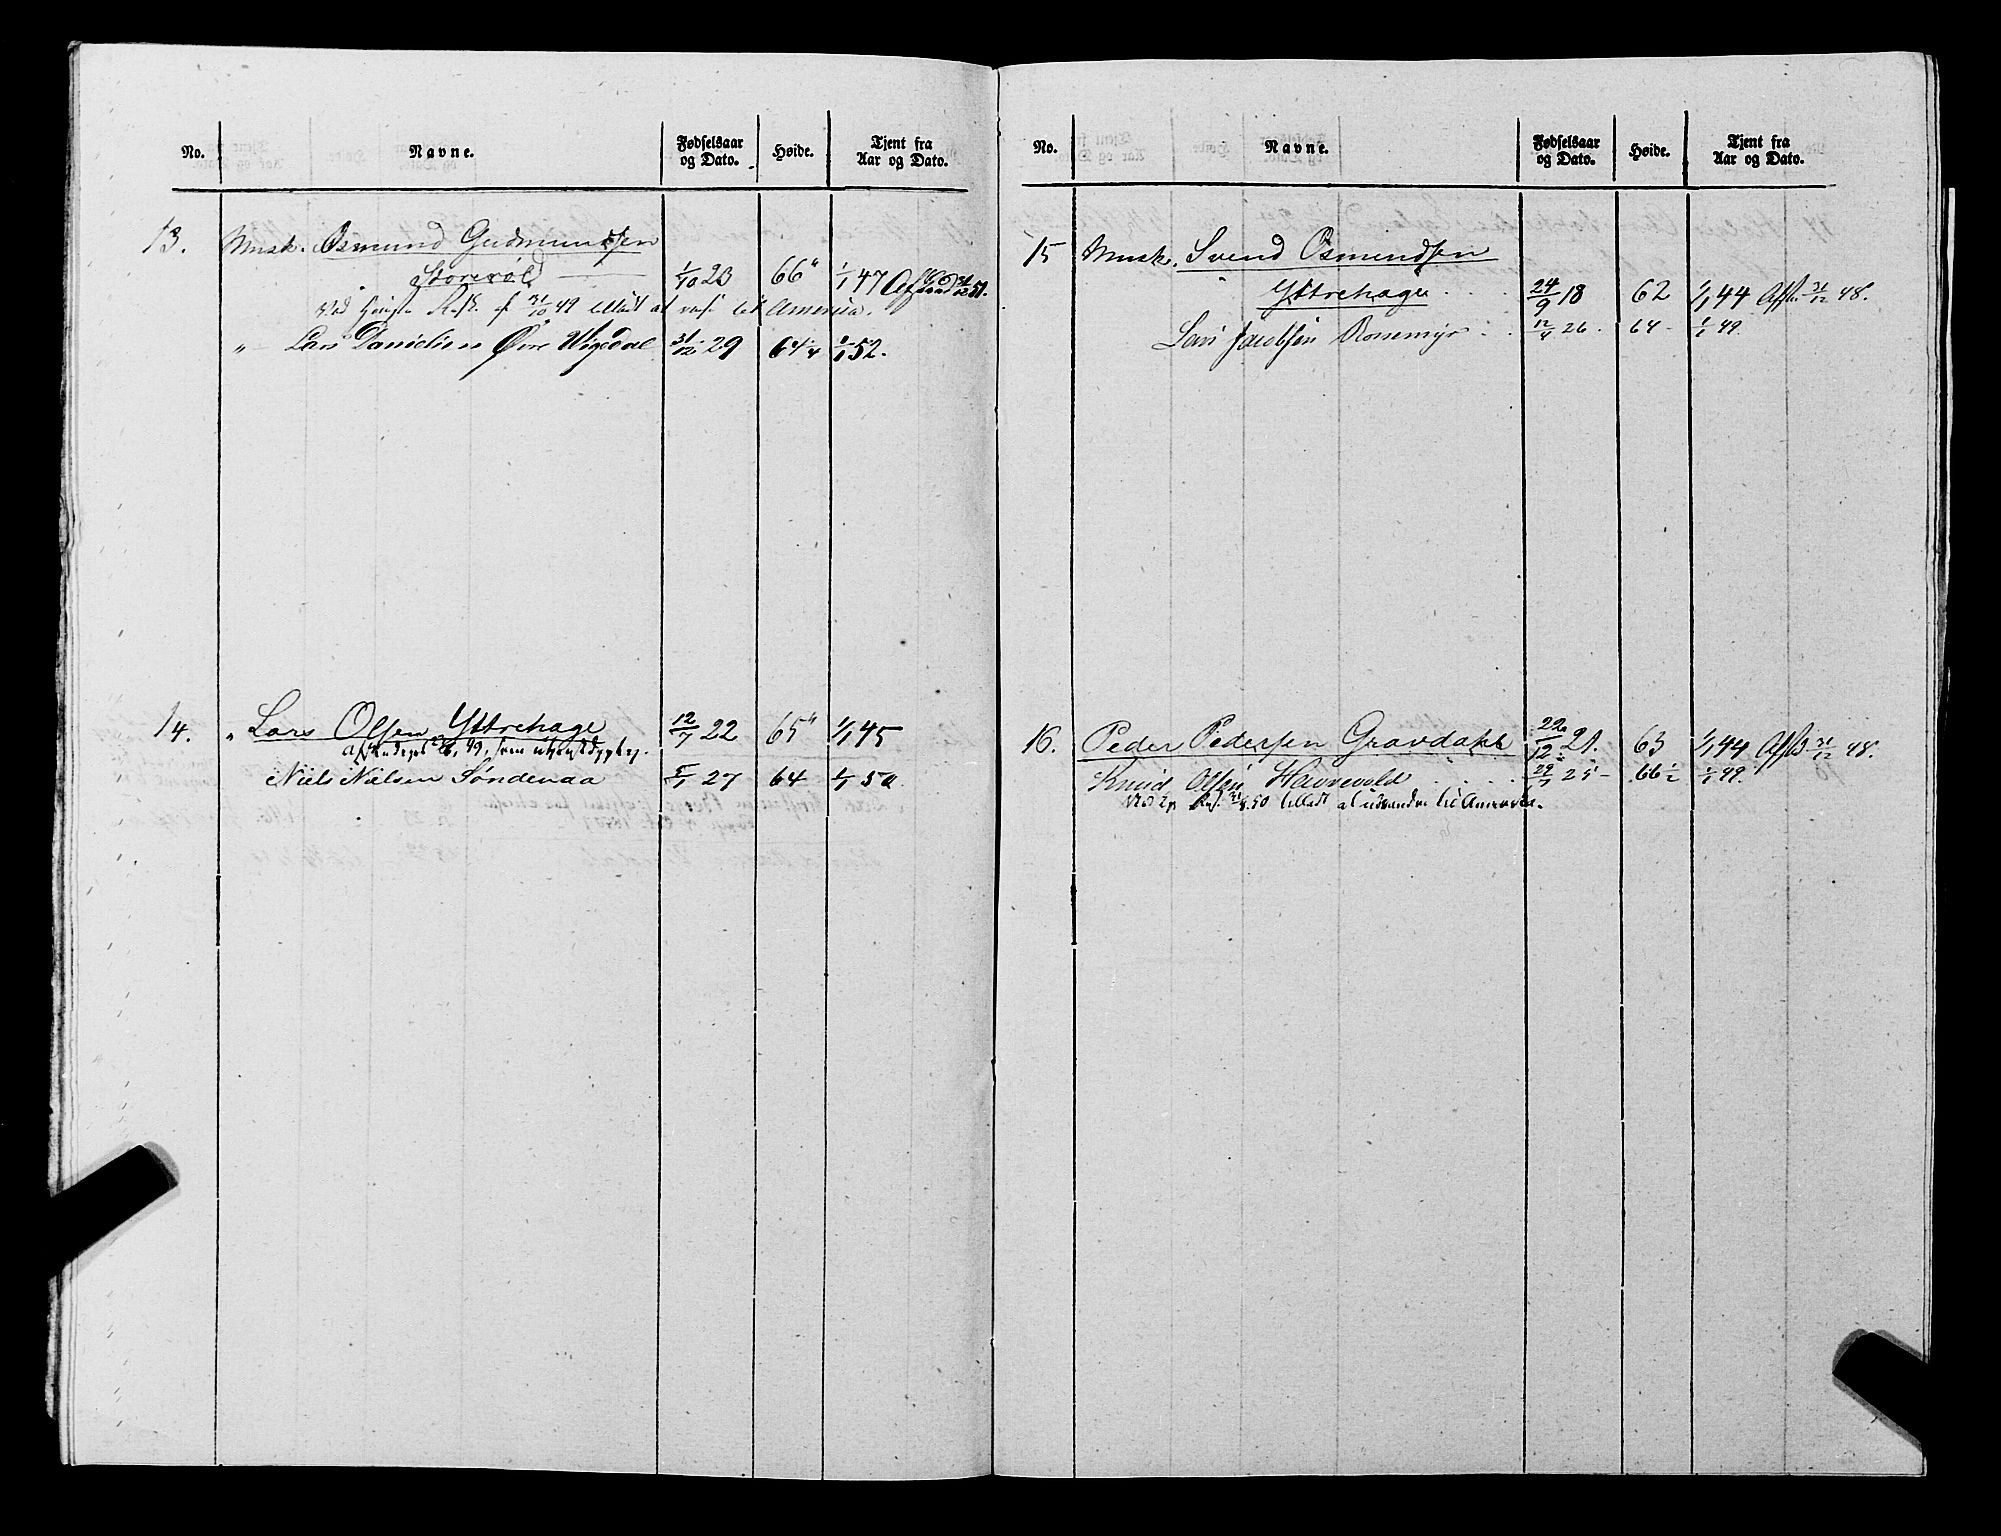 No. Navne. Fødselsaar og Dato. Høide. Tjent fra Aar og Dato.
13. Musk. Osmund Gudmundsen
Storevold 1/10 23 66" 1/1 47 Afskd 31/12 51.
Ved Høieste Resk. af 31/10 49 tilladt at reise til Amerika.
" Lars Danielsen Øvre Wigedal 31/12 29 64 1/4 1/1 52.
14. " Lars Olsen Yttrehage 12/7 22 65" 1/1 45
49, som
Niels Nielsen Søndenaa 5/7 27 64 1/1 50
No. Navne. Fødselsaar og Dato. Høide. Tjent fra Aar og Dato.
15 Musk. Svend Osmundsen
Yttrehage 24/9 18 62 1/1 44 Afsk. 31/12 48.
Lars Jacobsen Rossemyr 12/4 26. 64 1/1 49.
16. Peder Pedersen Gravdahl 22/12 21. 63 1/1 44 Afsk. 31/12 48.
Knud Olsen Havrevold 29/7 25 66 1/2 1/1 49.
Ved Resk. 31/8 50 tilladt at udvandre til Amerika.